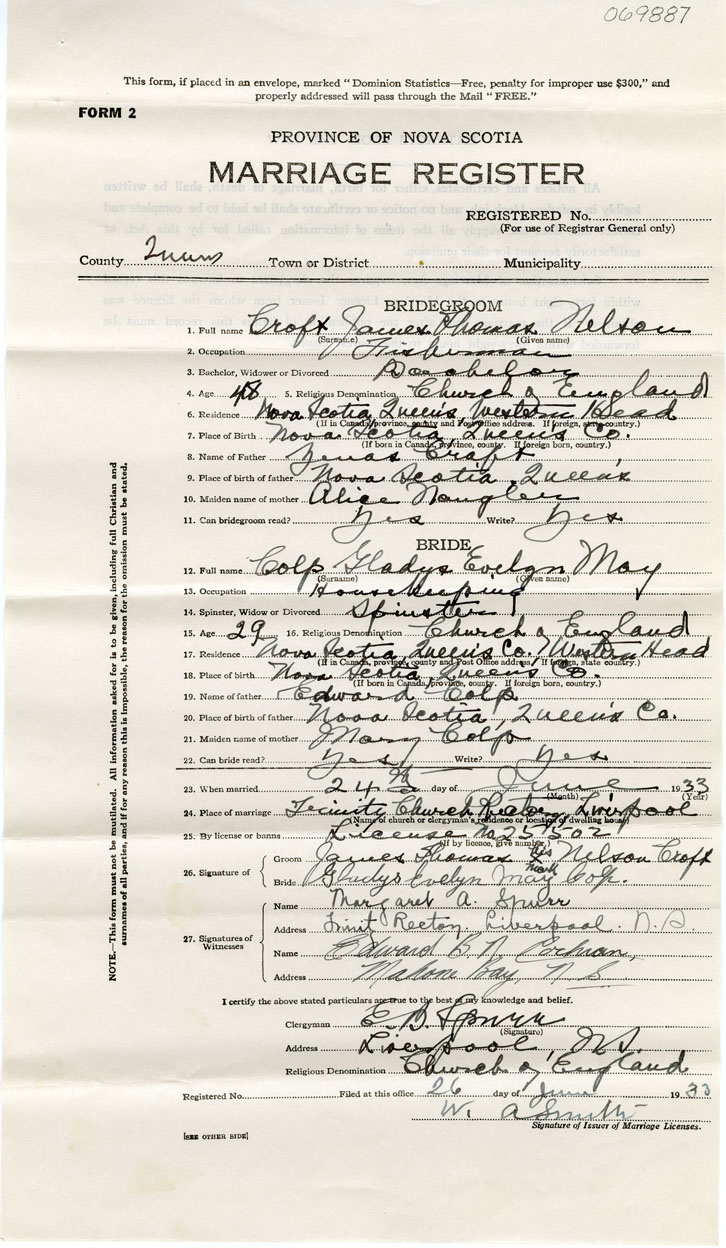 069887
This form, if placed in an envelope, marked "Dominion Statistics—Free, penalty for improper use $300," and
properly addressed will pass through the Mail "FREE."
FORM 2
PROVINCE OF NOVA SCOTIA
MARRIAGE REGISTER
REGISTERED No.
(For use of Registrar General only)
County Queens Town or District Municipality
BRIDEGROOM
1. Full name Croft James Thomas Nelson
(Surname) (Given name)
2. Occupation Fisherman
3. Bachelor, Widower or Divorced Bachelor
4. Age 48 5. Religious Denomination Church of England
6. Residence Nova Scotia, Queens, Western Head
(If in Canada, province, county and Post Office address. If foreign, state country.)
7. Place of Birth Nova Scotia, Queens Co.
(If born in Canada, province, county. If foreign born, country.)
8. Name of Father Croft
9. Place of birth of father Nova Scotia, Queens
10. Maiden name of mother Alice Naugler
11. Can bridegroom read? Yes Write? Yes
BRIDE
12. Full name Colp Gladys Evelyn May
(Surname) (Given name)
13. Occupation Housekeeping
14. Spinster, Widow or Divorced Spinster
15. Age 29 16. Religious Denomination Church of England
17. Residence Nova Scotia, Queens Co. Western Head
(If in Canada, province, county and Post Office address. If foreign, state country.)
18. Place of birth Nova Scotia, Queens Co.
(If born in Canada, province, county. If foreign born, country.)
19. Name of father Edward Colp
20. Place of birth of father Nova Scotia, Queens Co.
21. Maiden name of mother Mary Colp
22. Can bride read? Yes Write? Yes
23. When married 24th day of June 1933
(Month) (Year)
24. Place of marriage Trinity Church Rectory, Liverpool
(Name of church or clergyman's residence or location of dwelling house)
25. By license or banns License No. 25502
(If by licence, give number.)
26. Signature of Groom James Thomas his X mark Nelson Croft
Bride Gladys Evelyn May Colp.
27. Signatures of Witnesses
Name Margaret A. Spurr
Address Trinity Rectory, Liverpool. N.S.
Name Edward B. N. Cochran,
Address Mahone Bay, N S
I certify the above stated particulars are true to the best of my knowledge and belief.
Clergyman E. B. Spurr
(Signature)
Address Liverpool, N.S.
Religious Denomination Church of England
Registered No. Filed at this office 26 day of June 1933
W. A Smith
Signature of Issuer of Marriage Licenses.
[SEE OTHER SIDE]
NOTE.—This form must not be mutilated. All information asked for is to be given, including full Christian and
surnames of all parties, and if for any reason this is impossible, the reason for the omission must be stated.